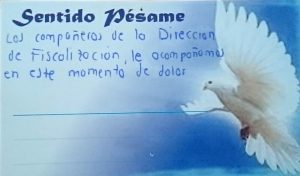 Sentido Pésame
Los compañeros de la Dirección
de Fiscalización, le acompañamos
en este momento de dolor